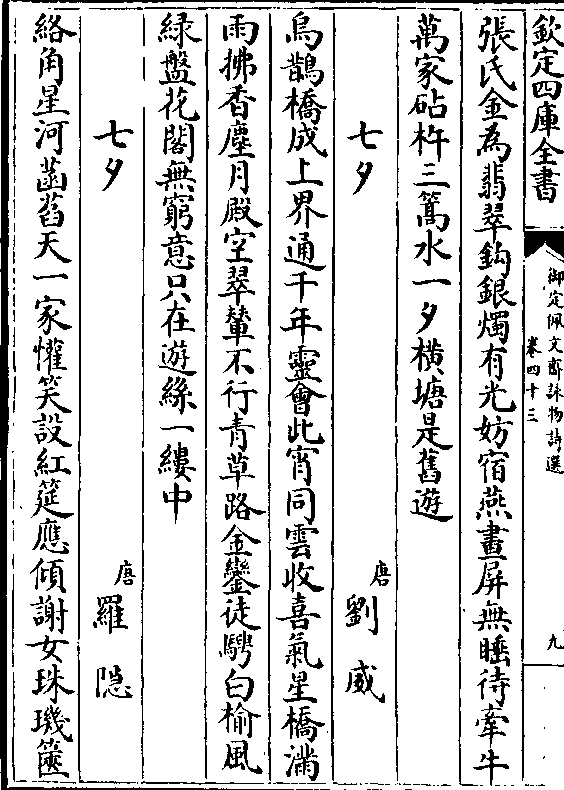 欽定四庫全書
御定佩文齋詠物詩選
卷四十三
九
張氏金為翡翠鈎銀燭有光妨宿燕畫屏無睡待牽牛
萬家砧杵三篙水一夕橫塘是舊遊
七夕
唐
劉威
烏鵲橋成上界通千年靈會此宵同雲收喜氣星橋滿
雨拂香塵月殿空翠輦不行青草路金鑾徒騁白榆風
緑盤花閣無窮意只在遊絲一縷中
七夕
唐
羅隠
絡角星河菡萏天一家懽笑設紅筵應傾謝女珠璣篋